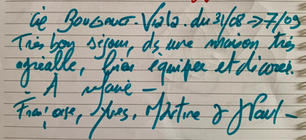 Cie BOUSQUET-Viala. du 31/08 → 7/09
Très bon séjour, ds une maison très
agréable, bien équipée et décorée.
- À refaire -
Françoise, Yves, Martine & JPaul -